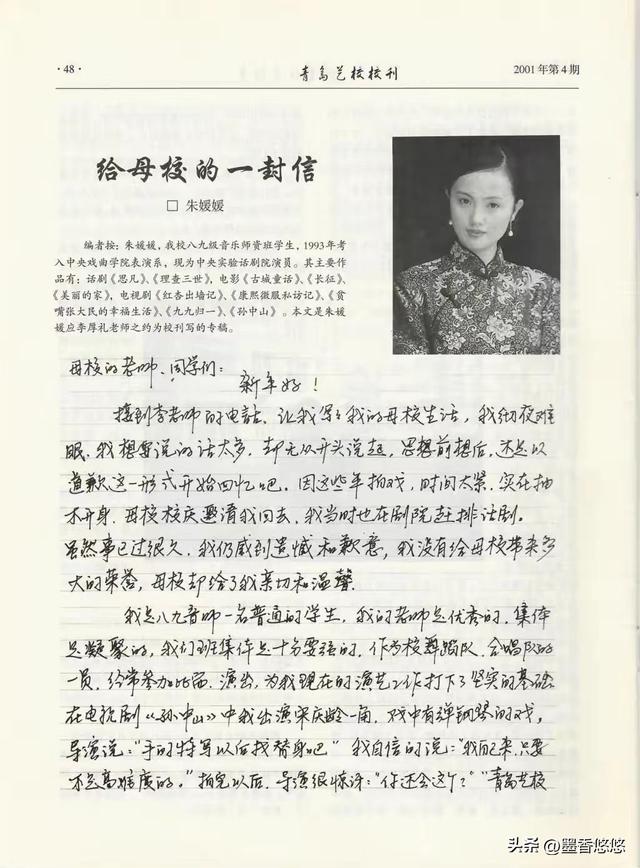 ·48·
青岛艺校校刊
2001年第4期
给母校的一封信
□ 朱媛媛
编者按：朱媛媛，我校八九级音乐师资班学生，1993年考
入中央戏曲学院表演系，现为中央实验话剧院演员。其主要作
品有：话剧《思凡》、《理查三世》，电影《古城童话》、《长征》、
《美丽的家》，电视剧《红杏出墙记》、《康熙微服私访记》、《贫
嘴张大民的幸福生活》、《九九归一》、《孙中山》。本文是朱媛
媛应李厚礼老师之约为校刊写的专稿。
母校的老师、同学们：
新年好！
接到李老师的电话，让我写写我的母校生活，我彻夜难
眠，我想要说的话太多，却无从开头说起，思想前想后，还是以
道歉这一形式开始回忆吧。因这些年拍戏，时间太紧，实在抽
不开身，母校校庆邀请我回去，我当时也在剧院赶排话剧。
虽然事已过很久，我仍感到遗憾和歉意，我没有给母校带来多
大的荣誉，母校却给了我亲切和温馨。
我是八九音师一名普通的学生，我的老师是优秀的，集体
是凝聚的，我们班集体是十分要强的，作为校舞蹈队、合唱队的
一员，经常参加比赛、演出，为我现在的演艺工作打下了坚实的基础
在电视剧《孙中山》中我出演宋庆龄一角，戏中有弹钢琴的戏，
导演说：“手的特写以后找替身吧”我自信的说：“我自己来，只要
不是高难度的。”拍完以后，导演很惊讶：“你还会这个？”“青岛艺校
头条 @墨香悠悠